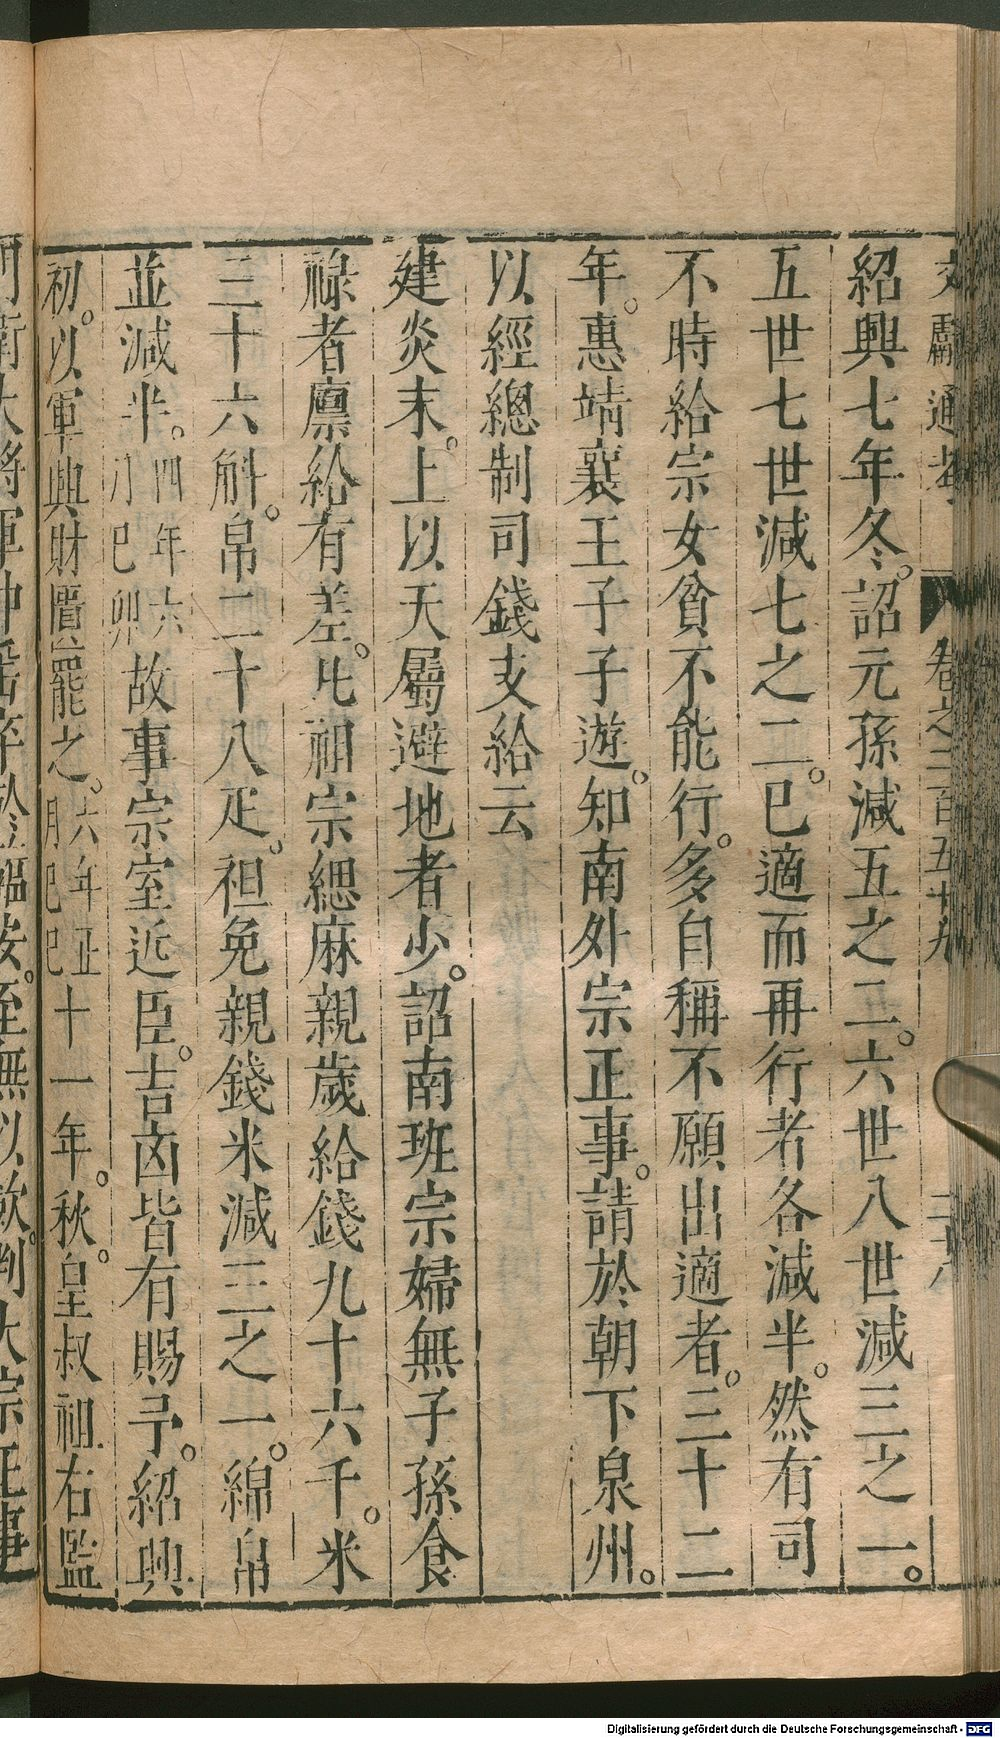 文獻通考 卷之二百五十九 二十八
紹興七年冬。詔元孫減五之二。六世八世減三之一。
五世七世減七之二。已適而再行者各減半。然有司
不時給宗女貧不能行。多自稱不願出適者。三十二
年。惠靖襄王子子遊。知南外宗正事。請於朝下泉州。
以經總制司錢支給云
建炎末。上以天屬避地者少。詔南班宗婦無子孫食
祿者廪給有差。凡祖宗緦麻親歲給錢九十六千。米
三十六斛。帛二十八疋。袒免親錢米減三之一。綿帛
並減半。四年六月巳卯故事宗室近臣。吉凶皆有賜予。紹興
初。以軍興財匱罷之。六年正月巳巳十一年。秋。皇叔祖右監
門衛大將軍仲
至無以歛。判大宗正事
Digitalisierung gefördert durch die Deutsche Forschungsgemeinschaft - DFG